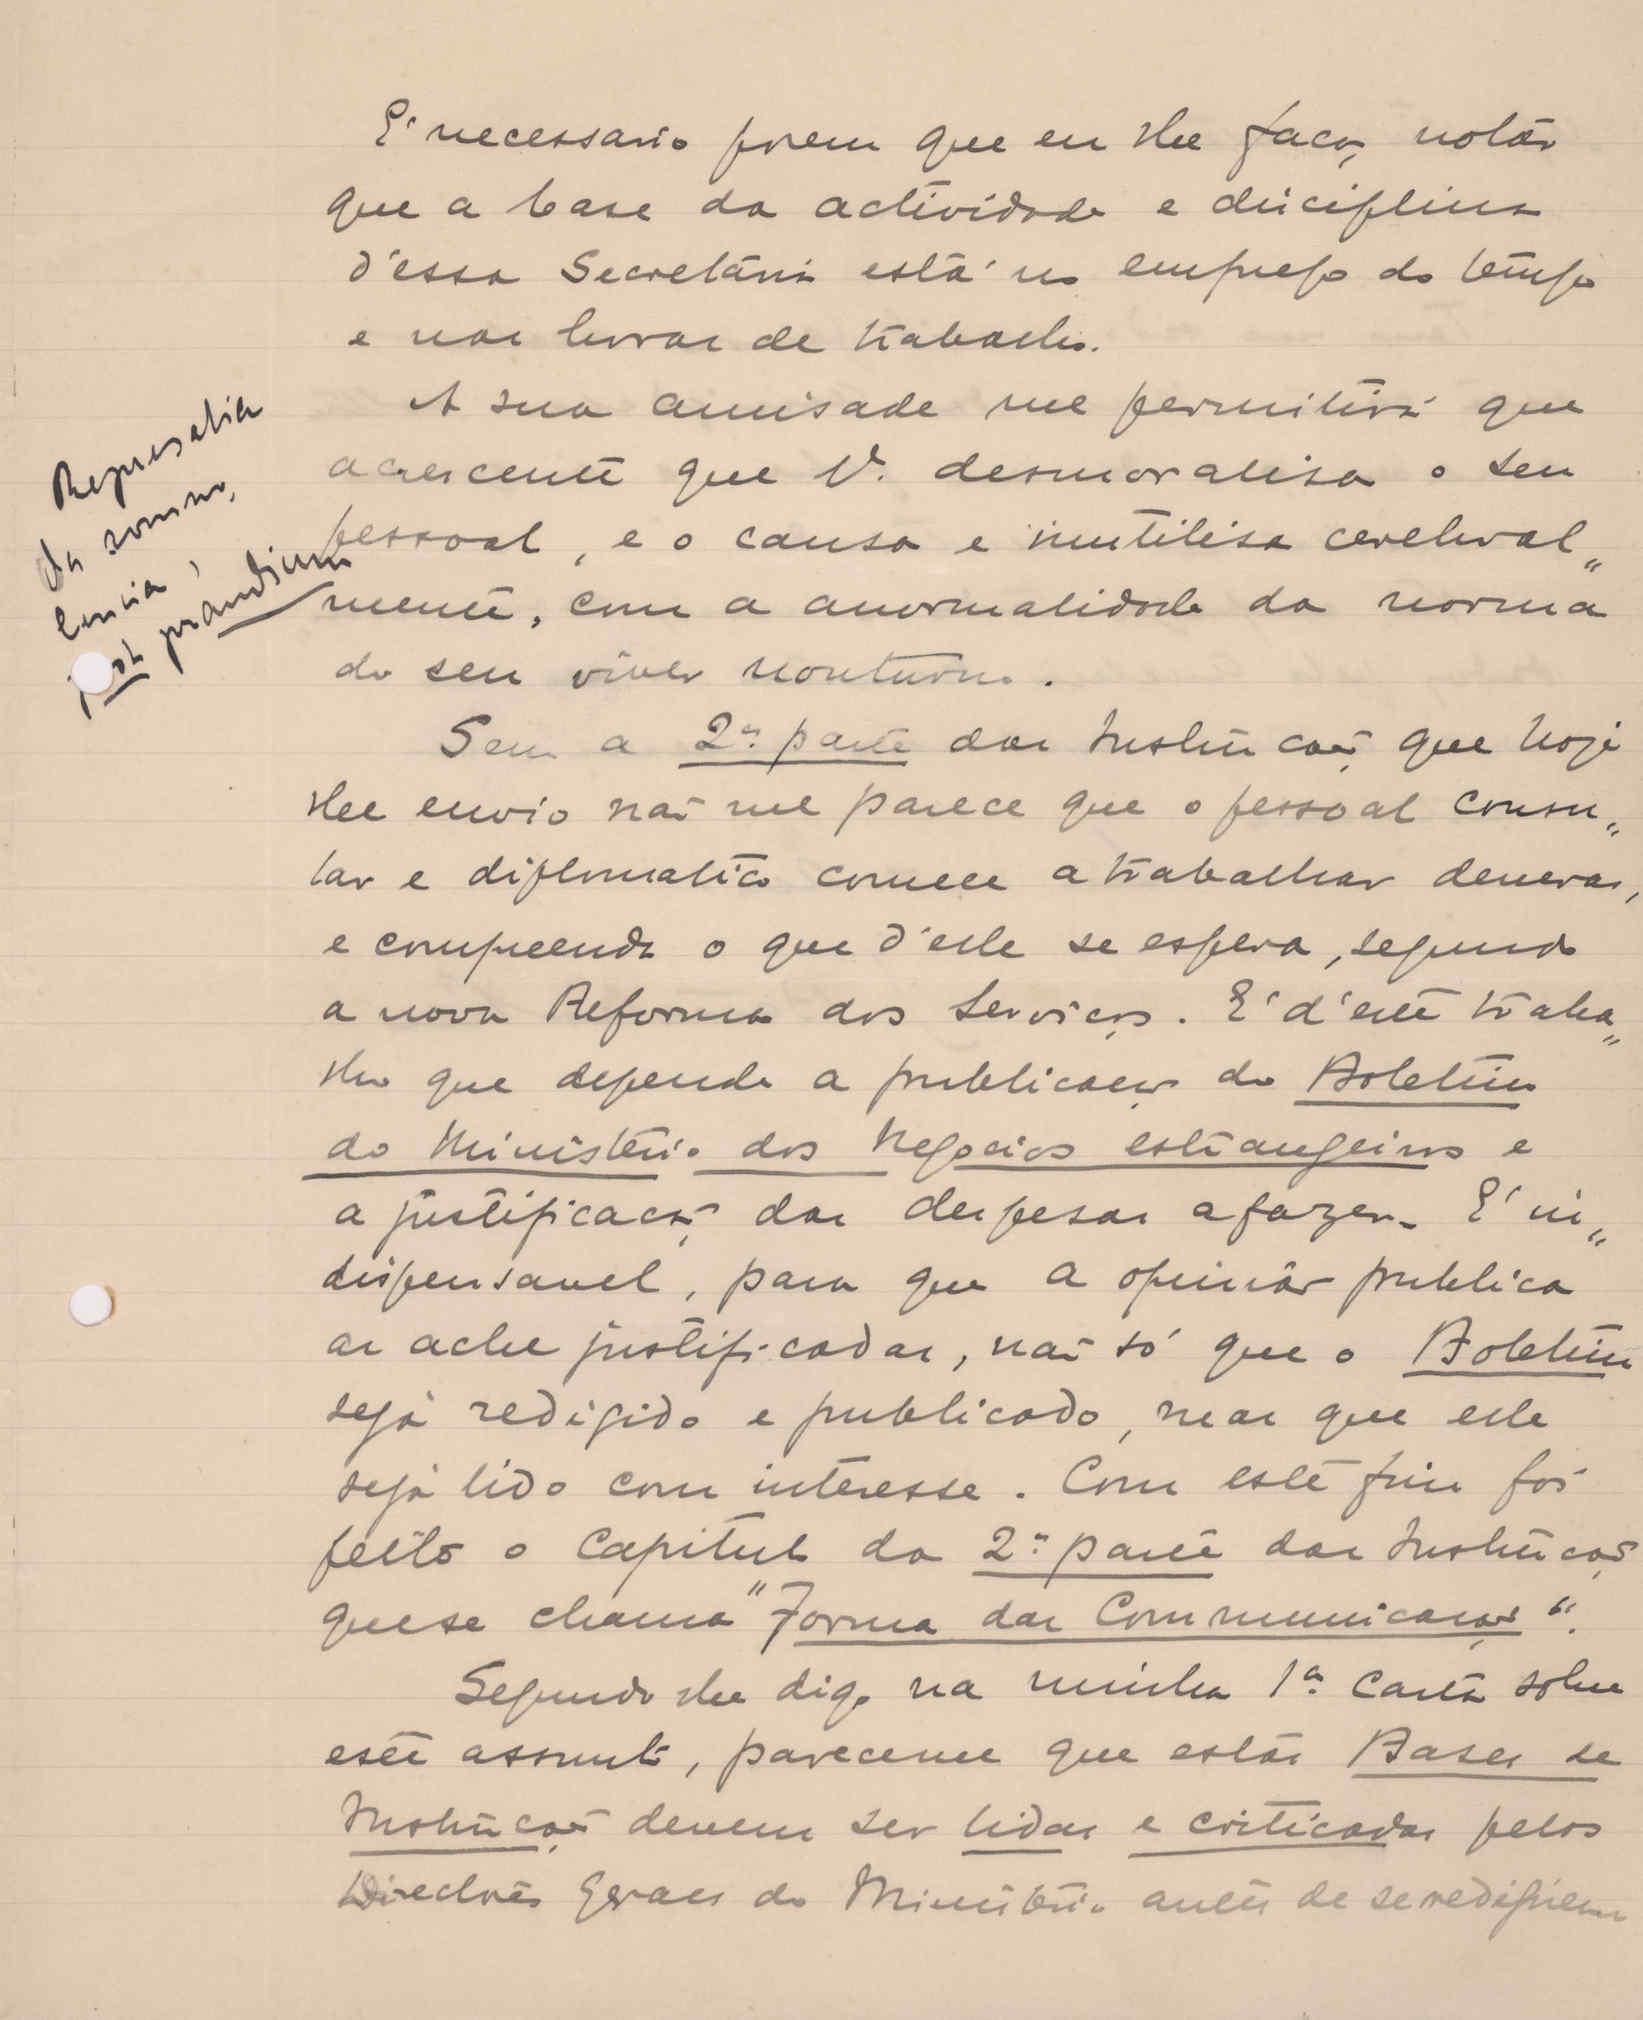 E' necessario porem que eu lhe faça notar
que a base da actividade e disciplina
d'essa Secretaria está no emprego do tempo
e nas horas de trabalho.
A sua amisade me permitirá que
acrescente que V. desmoralisa o seu
pessoal, e o cansa e inutilisa cerebral„
mente, com a anormalidade da norma
do seu viver nocturno.
Represalia
da somno,
lencia,
post prandium
Sem a 2ª parte das Instrucções que hoje
lhe envio não me parece que o pessoal consu„
lar e diplomatico comece a trabalhar deveras,
e comprehenda o que d'elle se espera, segundo
a nova Reforma dos Serviços. E' d'este traba„
lho que depende a publicação do Boletim
do Ministerio dos Negocios estrangeiros e
a justificação das despesas a fazer. E' in„
dispensavel, para que a opinião publica
as ache justificadas, não só que o Boletim
seja redigido e publicado, mas que elle
seja lido com interesse. Com este fim foi
feito o capitulo da 2ª parte das Instrucções
que se chama "Forma das Communicações".
Segundo lhe digo na minha 1ª Carta sobre
este assumpto, pareceme que estas Bases de
Instrucções devem ser lidas e criticadas pelos
Directores Geraes do Ministerio antes de se redigirem